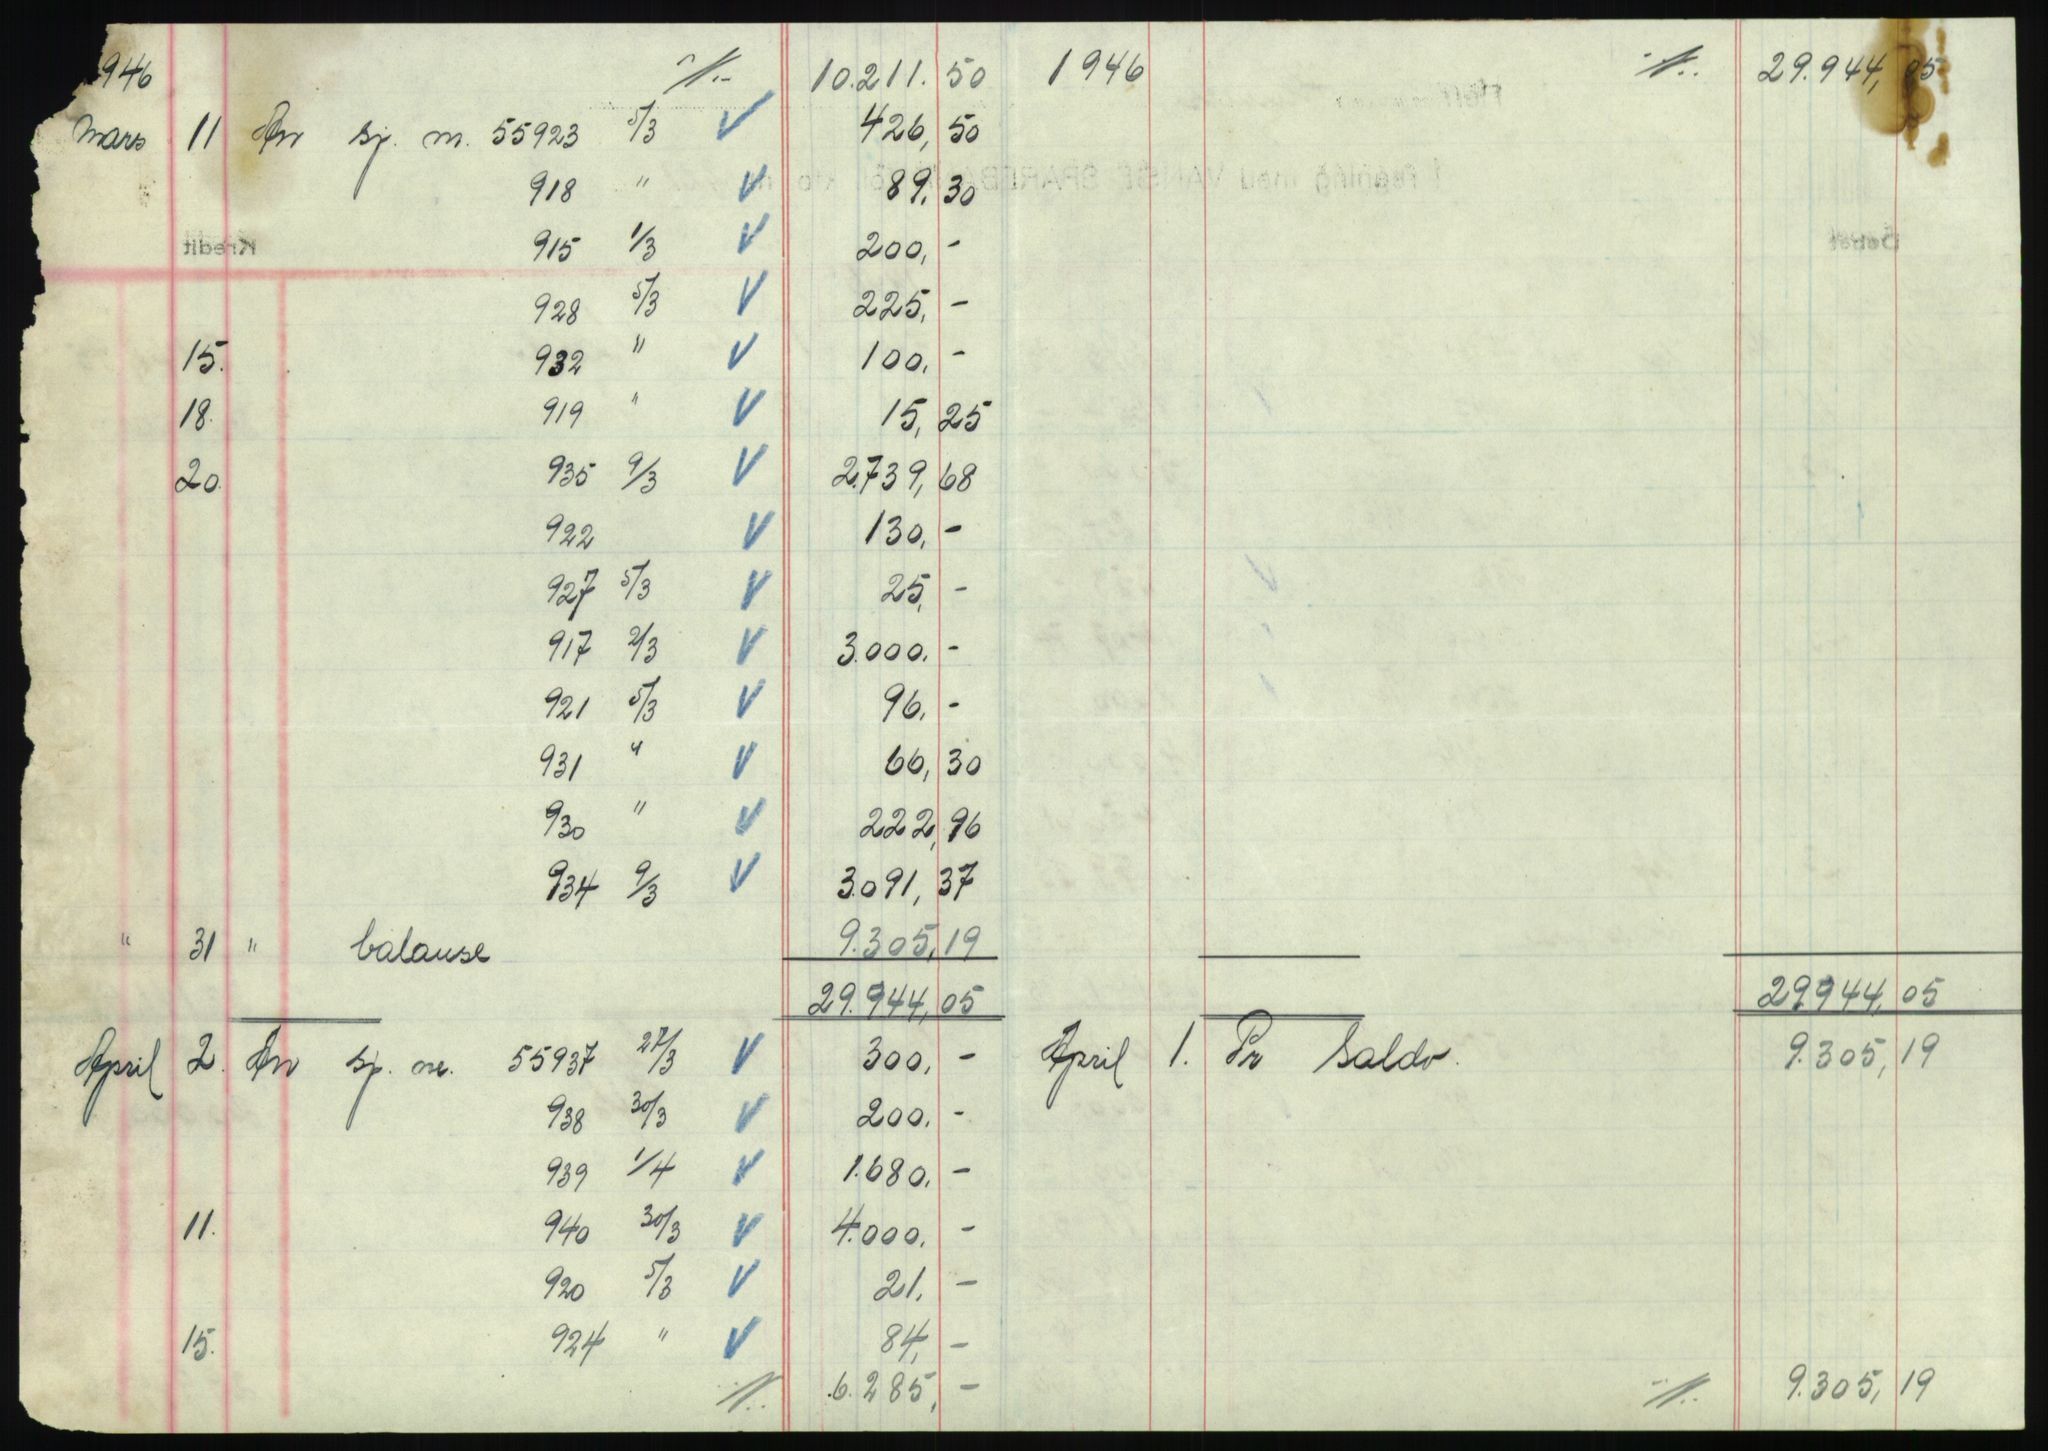 946 10.211.50 1946 29.944,05
mars 11 An sj. nr. 55923 5/3 V 426,50
918 " V 89.30
915 1/3 V 200,-
928 5/3 V 225,-
15. 932 " V 100,-
18. 919 " V 15,25
20. 935 9/3 V 2.739,68
922 V 130,-
927 5/3 V 25,-
917 2/3 V 3.000.-
921 5/3 V 96,-
931 " V 66,30
930 " V 222,96
934 9/3 V 3.091,37
" 31 " balanse 9.305,19
29.944,05 29.944,05
April 2. An sj. nr. 55937 27/3 V 300,- April 1. Pr saldo. 9.305,19
938 30/3 V 200.-
939 1/4 V 1.680.-
11. 940 30/3 V 4.000.-
920 5/3 V 21,-
15. 924 " V 84,-
6.285,- 9.305,19
Kredit
Debet